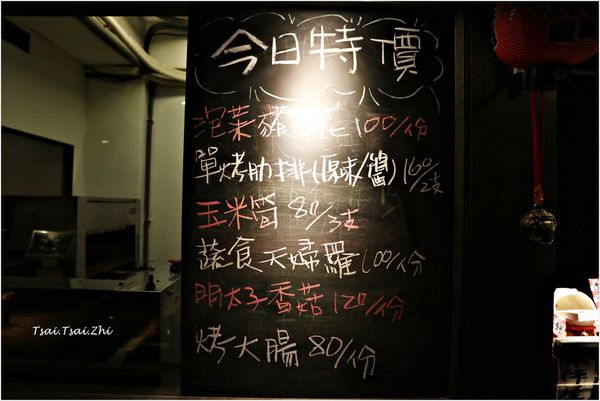 今日特價
泡菜豬 花 100/份
單烤肋排(原味/醬) 160/2支
玉米筍 80/3支
蔬食天婦羅 100/份
明太子香菇 120/份
烤大腸 80/份
Tsai.Tsai.Zhi